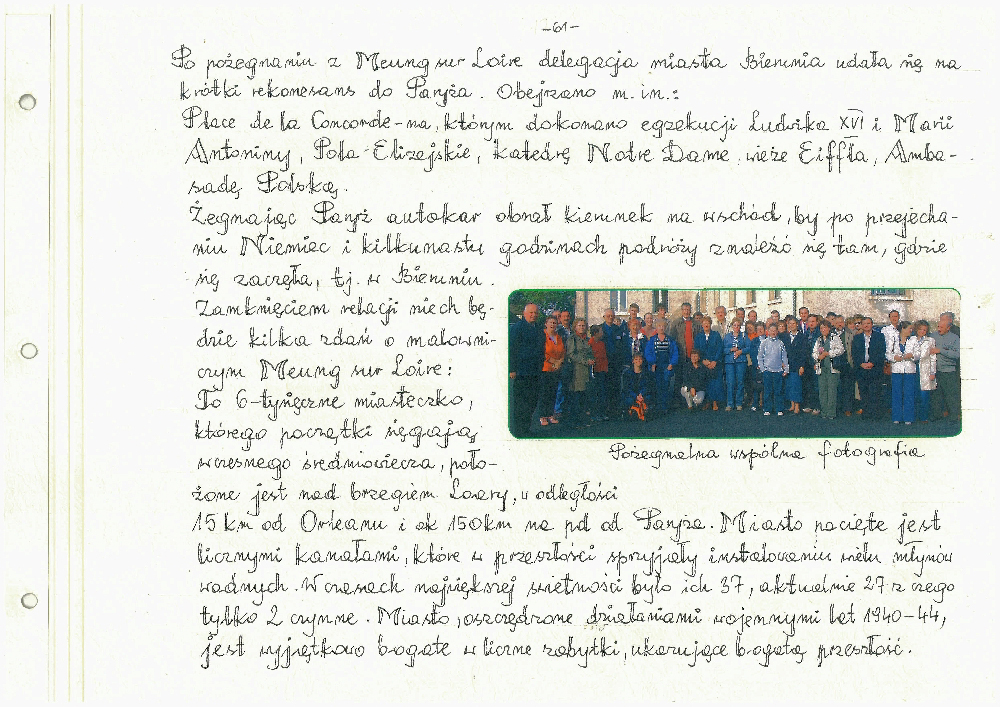 -61-
Po pożegnaniu z Meung sur Loire delegacja miasta Bierunia udała się na
krótki rekonesans do Paryża. Obejrzano m.in.:
Place de la Concorde-na, którym dokonano egzekucji Ludwika XVI i Marii
Antoniny, Pola Elizejskie, katedrę Notre Dame, wieże Eiffla, Amba-
sadę Polską.
Żegnając Paryż autokar obrał kierunek na wschód, by po przejecha-
niu Niemiec i kilkunastu godzinach podróży znaleźć się tam, gdzie
się zaczęła, tj. w Bieruniu.
Zamknięciem relacji niech bę-
dzie kilka zdań o malowni-
czym Meung sur Loire:
To 6-tysięczne miasteczko,
którego początki sięgają
wczesnego średniowiecza, poło-
żone jest nad brzegiem Loary, w odległości
15 km od Orleanu i ok 150km na pd od Paryża. Miasto pocięte jest
licznymi kanałami, które w przeszłości sprzyjały instalowaniu wielu młynów
wodnych. W czasach największej świetności było ich 37, aktualnie 27 z czego
tylko 2 czynne. Miasto, oszczędzone działaniami wojennymi lat 1940-44,
jest wyjątkowo bogate w liczne zabytki, ukazujące bogatą przeszłość.
Pożegnalna wspólna fotografia